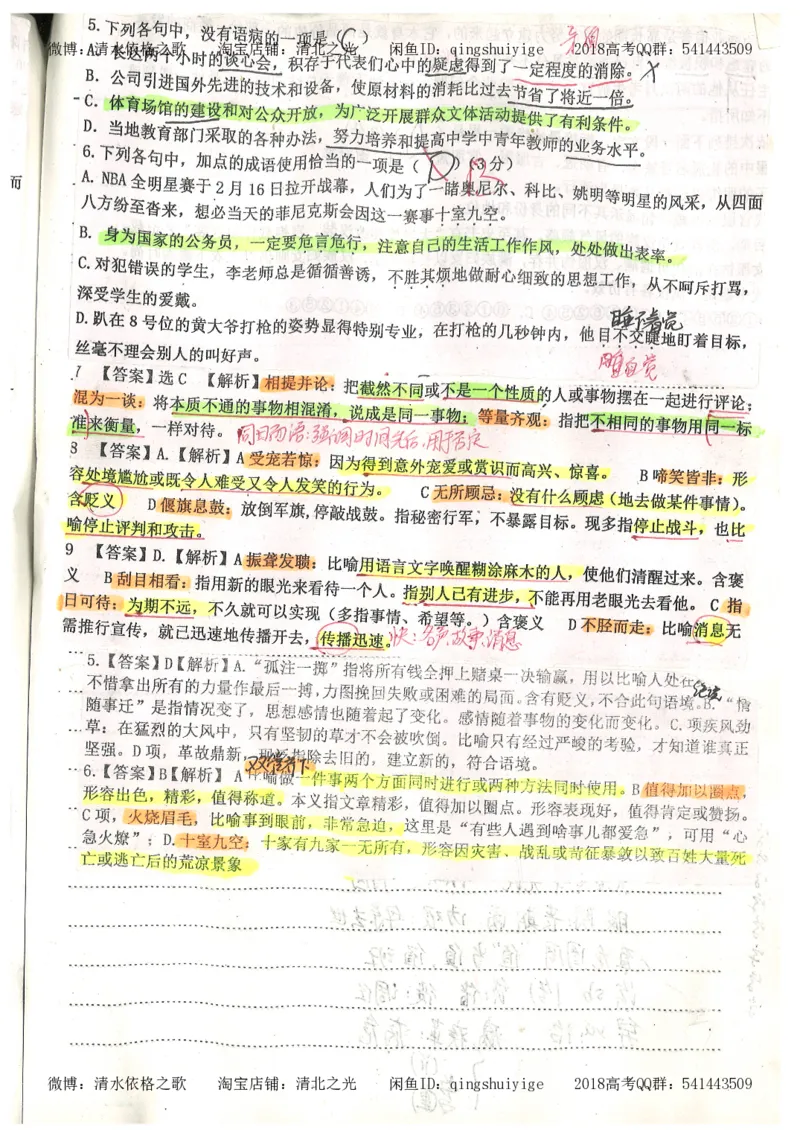 5.下列各句中，没有语病的一项是（C）
微博：清水依格之歌 淘宝店铺：清北之光 闲鱼ID：qingshuiyige 2018高考QQ群：541443509
A. 长达两个小时的谈心会，积存于代表们心中的疑虑得到了一定程度的消除。
B. 公司引进国外先进的技术和设备，使原材料的消耗比过去节省了将近一倍。
C. 体育场馆的建设和对公众开放，为广泛开展群众文体活动提供了有利条件。
D. 当地教育部门采取的各种办法，努力培养和提高中学中青年教师的业务水平。
6.下列各句中，加点的成语使用恰当的一项是（D）（3分） B
而
A. NBA 全明星赛于 2 月 16 日拉开战幕，人们为了一睹奥尼尔、科比、姚明等明星的风采，从四面
八方纷至沓来，想必当天的菲尼克斯会因这一赛事十室九空。
B. 身为国家的公务员，一定要危言危行，注意自己的生活工作作风，处处做出表率。
C.对犯错误的学生，李老师总是循循善诱，不胜其烦地做耐心细致的思想工作，从不呵斥打骂，
深受学生的爱戴。
D.趴在 8 号位的黄大爷打枪的姿势显得特别专业，在打枪的几秒钟内，他目不交睫地盯着目标，
丝毫不理会别人的叫好声。
7 【答案】选C 【解析】相提并论：把截然不同或不是一个性质的人或事物摆在一起进行评论；
混为一谈：将本质不通的事物相混淆，说成是同一事物；等量齐观：指把不相同的事物用同一标
准来衡量，一样对待。
8 【答案】A.【解析】A 受宠若惊：因为得到意外宠爱或赏识而高兴、惊喜。 B 啼笑皆非：形
容处境尴尬或既令人难受又令人发笑的行为。 C 无所顾忌：没有什么顾虑（地去做某件事情）。
含贬义 D 偃旗息鼓：放倒军旗,停敲战鼓。指秘密行军，不暴露目标。现多指停止战斗，也比
喻停止评判和攻击。
9 【答案】D.【解析】A 振聋发聩：比喻用语言文字唤醒糊涂麻木的人，使他们清醒过来。含褒
义 B 刮目相看：指用新的眼光来看待一个人。指别人已有进步，不能再用老眼光去看他。 C 指
日可待：为期不远，不久就可以实现（多指事情、希望等。）含褒义 D 不胫而走：比喻消息无
需推行宣传，就已迅速地传播开去，传播迅速。
5.【答案】D【解析】A.“孤注一掷”指将所有钱全押上赌桌一决输赢，用以比喻人处在
不惜拿出所有的力量作最后一搏,力图挽回失败或困难的局面。含有贬义,不合此句语境。B.“情
随事迁”是指情况变了，思想感情也随着起了变化。感情随着事物的变化而变化。C.项疾风劲
草：在猛烈的大风中，只有坚韧的草才不会被吹倒。比喻只有经过严峻的考验，才知道谁真正
坚强。D 项，革故鼎新，现泛指除去旧的，建立新的，符合语境。
6.【答案】B【解析】 A 双管齐下 比喻做一件事两个方面同时进行或两种方法同时使用。B 值得加以圈点，
形容出色，精彩，值得称道。本义指文章精彩，值得加以圈点。形容表现好，值得肯定或赞扬。
C 项，火烧眉毛，比喻事到眼前，非常急迫，这里是“有些人遇到啥事儿都爱急”，可用“心
急火燎”；D.十室九空：十家有九家一无所有，形容因灾害、战乱或苛征暴敛以致百姓大量死
亡或逃亡后的荒凉景象
微博：清水依格之歌 淘宝店铺：清北之光 闲鱼ID：qingshuiyige 2018高考QQ群：541443509